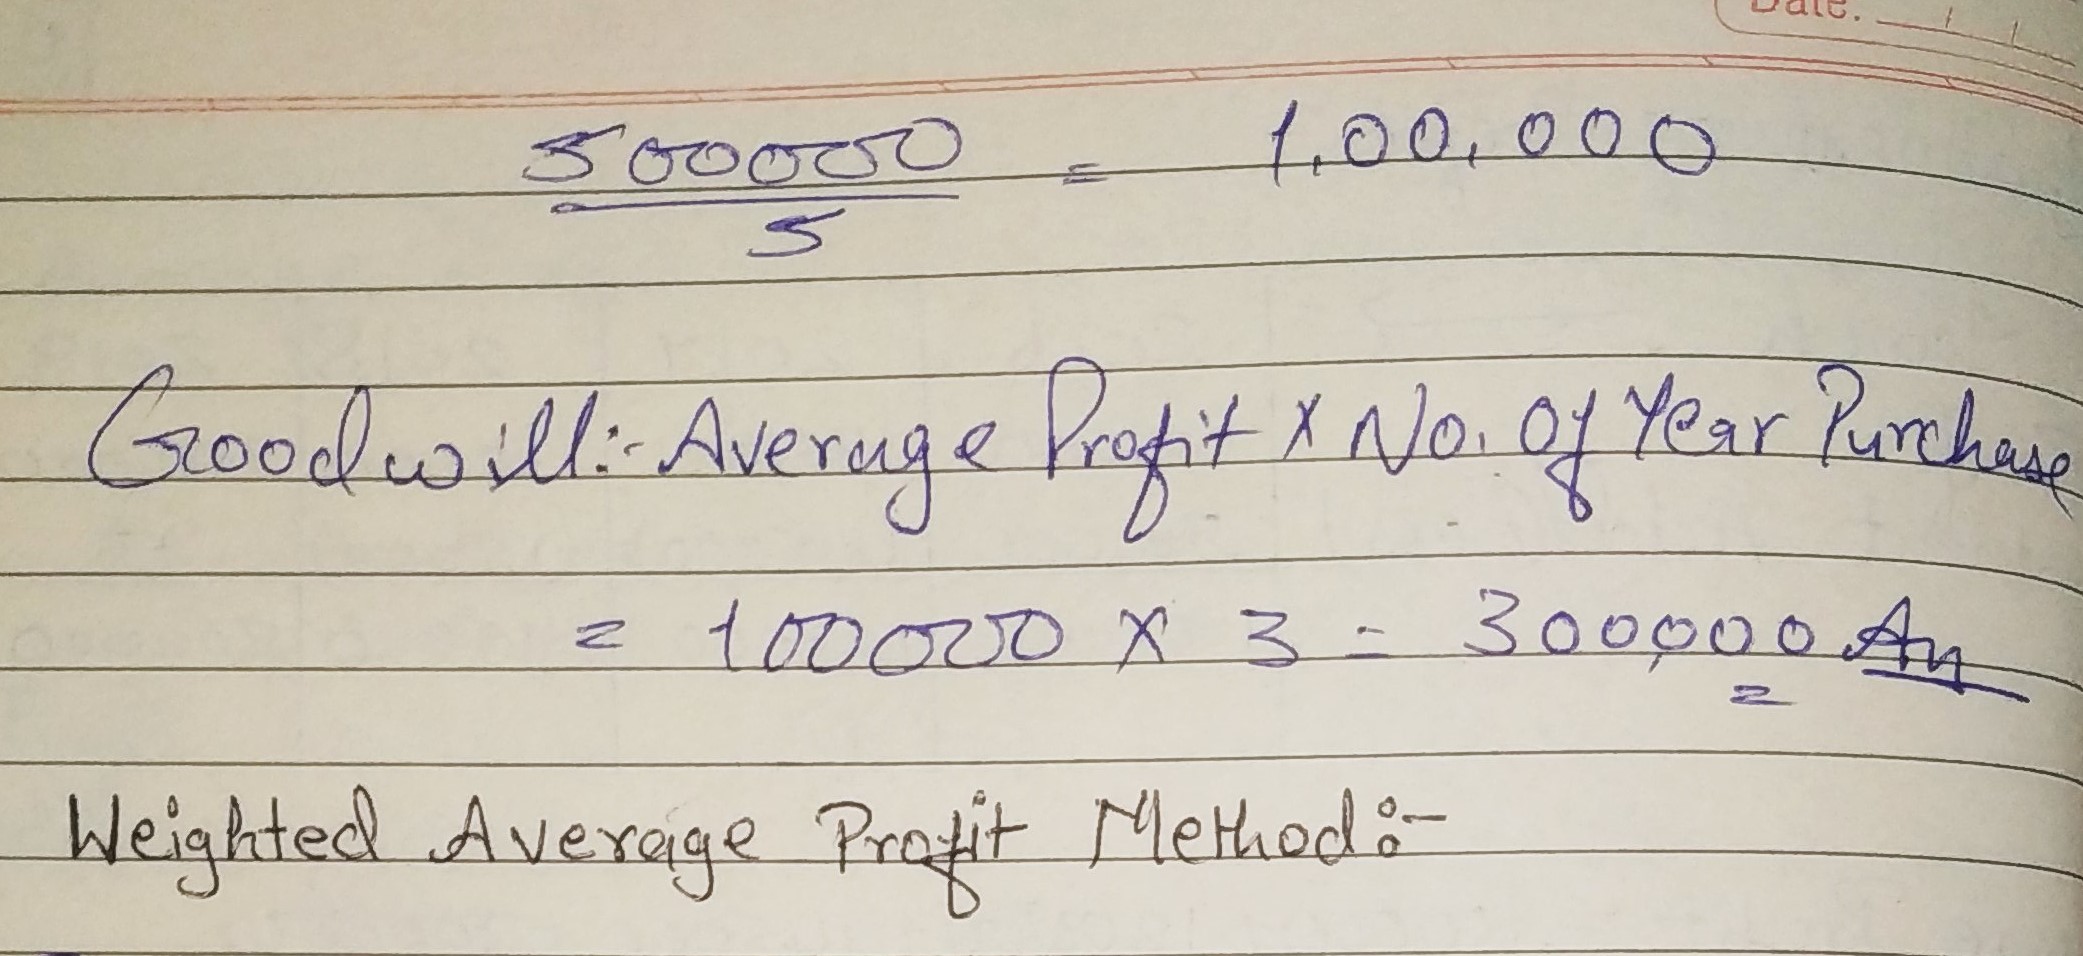 Date. / /
500000 = 1,00,000
5
Goodwill:- Average Profit X No. Of Year Purchase
= 100000 X 3 = 300,000 An
Weighted Average Profit Method:-